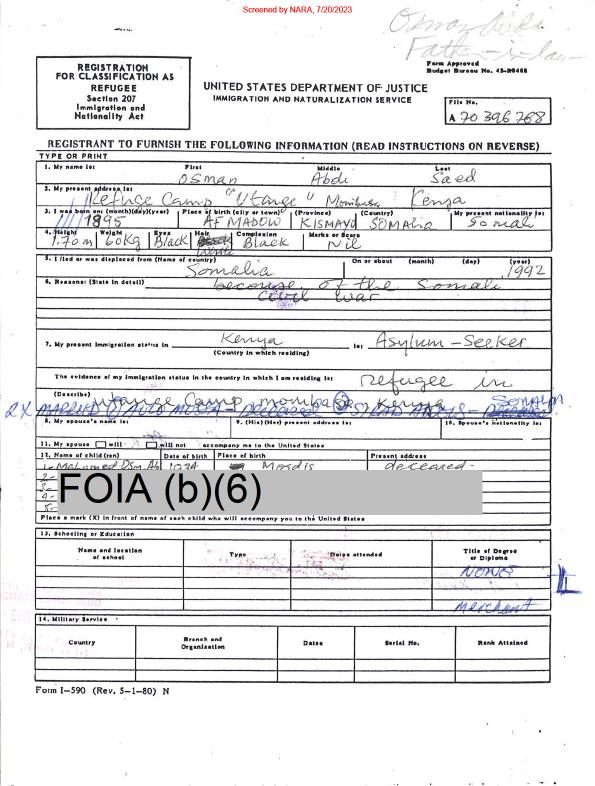 Screened by NARA, 7/20/2023
Osman Abdi
Father-in-law
Form Approved
Budget Bureau No. 43-R0468
REGISTRATION
FOR CLASSIFICATION AS
REFUGEE
Section 207
Immigration and
Nationality Act
UNITED STATES DEPARTMENT OF JUSTICE
IMMIGRATION AND NATURALIZATION SERVICE
File No.
A 70 396 768
REGISTRANT TO FURNISH THE FOLLOWING INFORMATION (READ INSTRUCTIONS ON REVERSE)
TYPE OR PRINT
1. My name is: First Middle Last
Osman Abdi Saed
2. My present address is:
Refuge Camp "Utange" Mombasa Kenya
3. I was born on: (month)(day)(year) Place of birth (city or town) (Province) (Country) My present nationality is:
1895 AFMADOW KISMAYO SOMALIA Somali
4. Height Weight Eyes Hair Complexion Marks or Scars
1.70m 60Kg Black White Black Nil
5. I fled or was displaced from (Name of country) On or about (month) (day) (year)
Somalia 1992
6. Reasons: (State in detail)
because of the Somali
civil war
7. My present immigration status in Kenya is: Asylum-Seeker
(Country in which residing)
The evidence of my immigration status in the country in which I am residing is: refugee in
(Describe) utange Camp mombasa, Kenya
2X MARRIED deceased
8. My spouse's name is: 9. (His)(Her) present address is: 10. Spouse's nationality is:
11. My spouse will will not accompany me to the United States
12. Name of child(ren) Date of birth Place of birth Present address
1- Mohamed Osm. Ab 1934 deceased
2-
3-
4-
5-
FOIA (b)(6)
Place a mark (X) in front of name of each child who will accompany you to the United States
13. Schooling or Education
Name and location
of school
Type
Dates attended
Title of Degree
or Diploma
NONE
Merchant
14. Military Service
Country
Branch and
Organization
Dates
Serial No.
Rank Attained
Form I-590 (Rev. 5-1-80) N